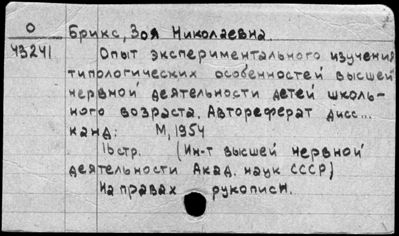 О
Брикс, Зоя Николаевна.
43241.
Опыт экспериментального изучения
типологических особенностей высшей
нервной деятельности детей школь-
ного возраста. Автореферат дисс...
канд: М, 1954
16 стр. (Ин-т высшей нервной
деятельности Акад. наук СССР)
На правах рукописи.